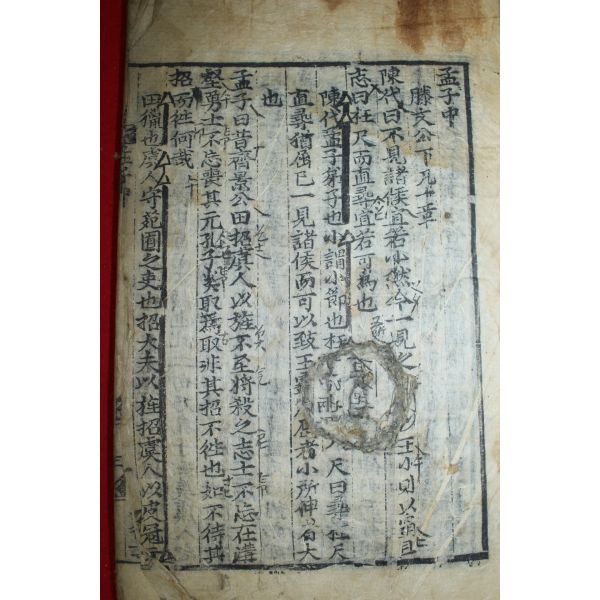 孟子中
滕文公下凡十章
陳代曰不見諸侯宜若小然今一見之王小則以霸且
志曰枉尺而直尋宜若可爲也
陳代孟子弟子也小謂小節也枉尺曰尋枉尺
直尋猶屈己一見諸侯而可以致王霸所屈者小所伸者大
也
孟子曰昔齊景公田招虞人以旌不至將殺之志士不忘在溝
壑勇士不忘喪其元孔子奚取焉取非其招不往也如不待其
招而往何哉
田獵也虞人守苑囿之吏也招大夫以旌招虞人以皮冠